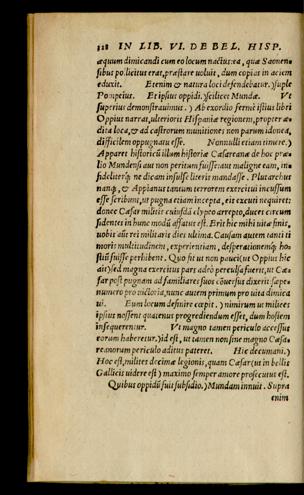 328 IN LIB. VI. DE BEL. HISP.
æquum dimicandi cum eo locum nactus: ea, quæ Saonen-
sibus pollicitus erat, præstare voluit, dum copias in aciem
eduxit. Etenim & natura loci defendebatur.) suple
Pompeius. Et ipsius oppidi.) scilicet Mundæ. Vt
superius demonstrauimus.) Ab exordio fermè istius libri
Oppius narrat, ulterioris Hispaniæ regionem, propter æ-
dita loca, & ad castrorum munitiones non parum idonea,
difficilem oppugnatu esse. Nonnulli etiam timere.)
Apparet historicũ illum historiæ Cæsareanæ de hoc præ-
lio Mundensi aut non peritum fuisse: aut maligne eam, in-
fideliterq; ne dicam insulse literis mandasse. Plutarchus
nanq;, & Appianus tantum terrorem exercitui incussum
esse scribunt, ut pugna etiam incepta, eis excuti nequiret:
donec Cæsar militis cuiusdã clypto arrepto, duces circum
sidentes in hunc modũ affatus est. Erit hic mihi uitæ finis,
uobis aũt rei militaris dies ultima. Causam autem tanti ti
moris multitudinem, experientiam, desperationemq; ho-
stiũ fuisse perhibent. Quo fit ut non pauci (ut Oppius hic
ait) sed magna exercitus pars adeò perculsa fuerit, ut Cæ-
sar post pugnam ad familiares suos cõuersus dixerit sæpe-
numero pro uictoria, nunc autem primum pro uita dimica
ui. Eum locum definire cœpit.) nimirum ut milites
ipsius nossent quatenus progrediendum esset, dum hostem
insequerentur. Vt magno tamen periculo accessus
eorum haberetur.) id est, ut tamen non sine magno Cæsa-
reanorum periculo aditus pateret. Hic decumani.)
Hoc est, milites decimæ legionis, quam Cæsar (ut in bellis
Gallicis uidere est) maximo semper amore prosecutus est.
Quibus oppidũ fuit subsidio.) Mundam innuit. Supra
enim